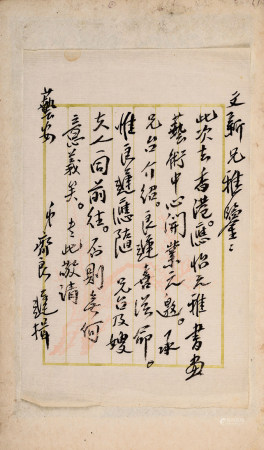 文新兄雅鑒：
此次去香港。應怡元雅書画
藝術中心開業元邀。承
兄台介紹。良遲喜從命。
惟良遲應隨 兄台及嫂
夫人一同前往。否則無何
意義矣。专此敬請
藝安 弟齊良遲揖